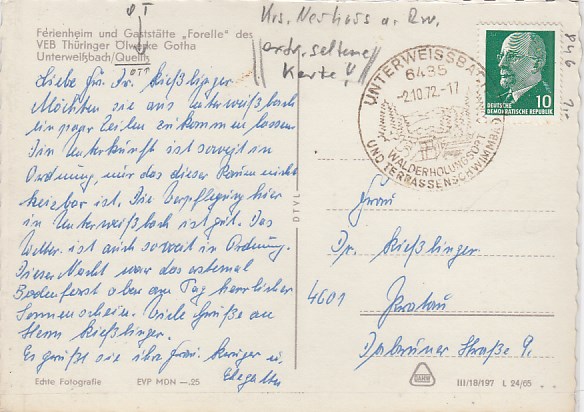 OT
Krs. Neuhaus a. Rw.
Ferienheim und Gaststätte „Forelle" des
VEB Thüringer Ölwerke Gotha
Unterweißbach/Quelitz
OT
extr. seltene
Karte!
UNTERWEISSBACH
6435
-2.10.72.-17
WALDERHOLUNGSORT
UND TERRASSENSCHWIMMBAD
10
DEUTSCHE
DEMOKRATISCHE REPUBLIK
Liebe Frau Dr. Kießlinger.
Möchten sie aus Unterweißbach
ein paar Zeilen zukommen lassen.
Die Unterkunft ist soweit in
Ordnung, nur das dieser Raum nicht
heizbar ist. Die Verpflegung hier
in Unterweißbach ist gut. Das
Wetter ist auch soweit in Ordnung.
Diese Nacht war das erstemal
Bodenfrost aber am Tag herrlicher
Sonnenschein. Viele Grüße an
Herrn Kießlinger.
Es grüßt sie ihre Frau
DTVL
Frau
Dr. Kießlinger
4601 Pratau
Dabruner Straße 9.
Echte Fotografie EVP MDN —.25
III/18/197 L 24/65